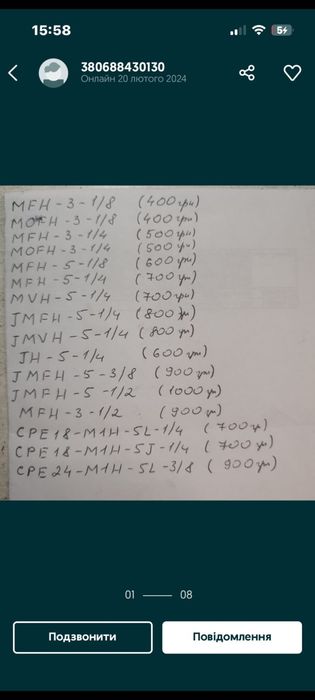 15:58
5
380688430130
Онлайн 20 лютого 2024
MFH-3-1/8 (400грн)
MOFH-3-1/8 (400грн)
MFH-3-1/4 (500грн)
MOFH-3-1/4 (500грн)
MFH-5-1/8 (600грн)
MFH-5-1/4 (700грн)
MVH-5-1/4 (700грн)
JMFH-5-1/4 (800грн)
JMVH-5-1/4 (800грн)
JH-5-1/4 (600грн)
JMFH-5-3/8 (900грн)
JMFH-5-1/2 (1000грн)
MFH-3-1/2 (900грн)
CPE18-M1H-5L-1/4 (700грн)
CPE18-M1H-5J-1/4 (700грн)
CPE24-M1H-5L-3/8 (900грн)
01 — 08
Подзвонити
Повідомлення